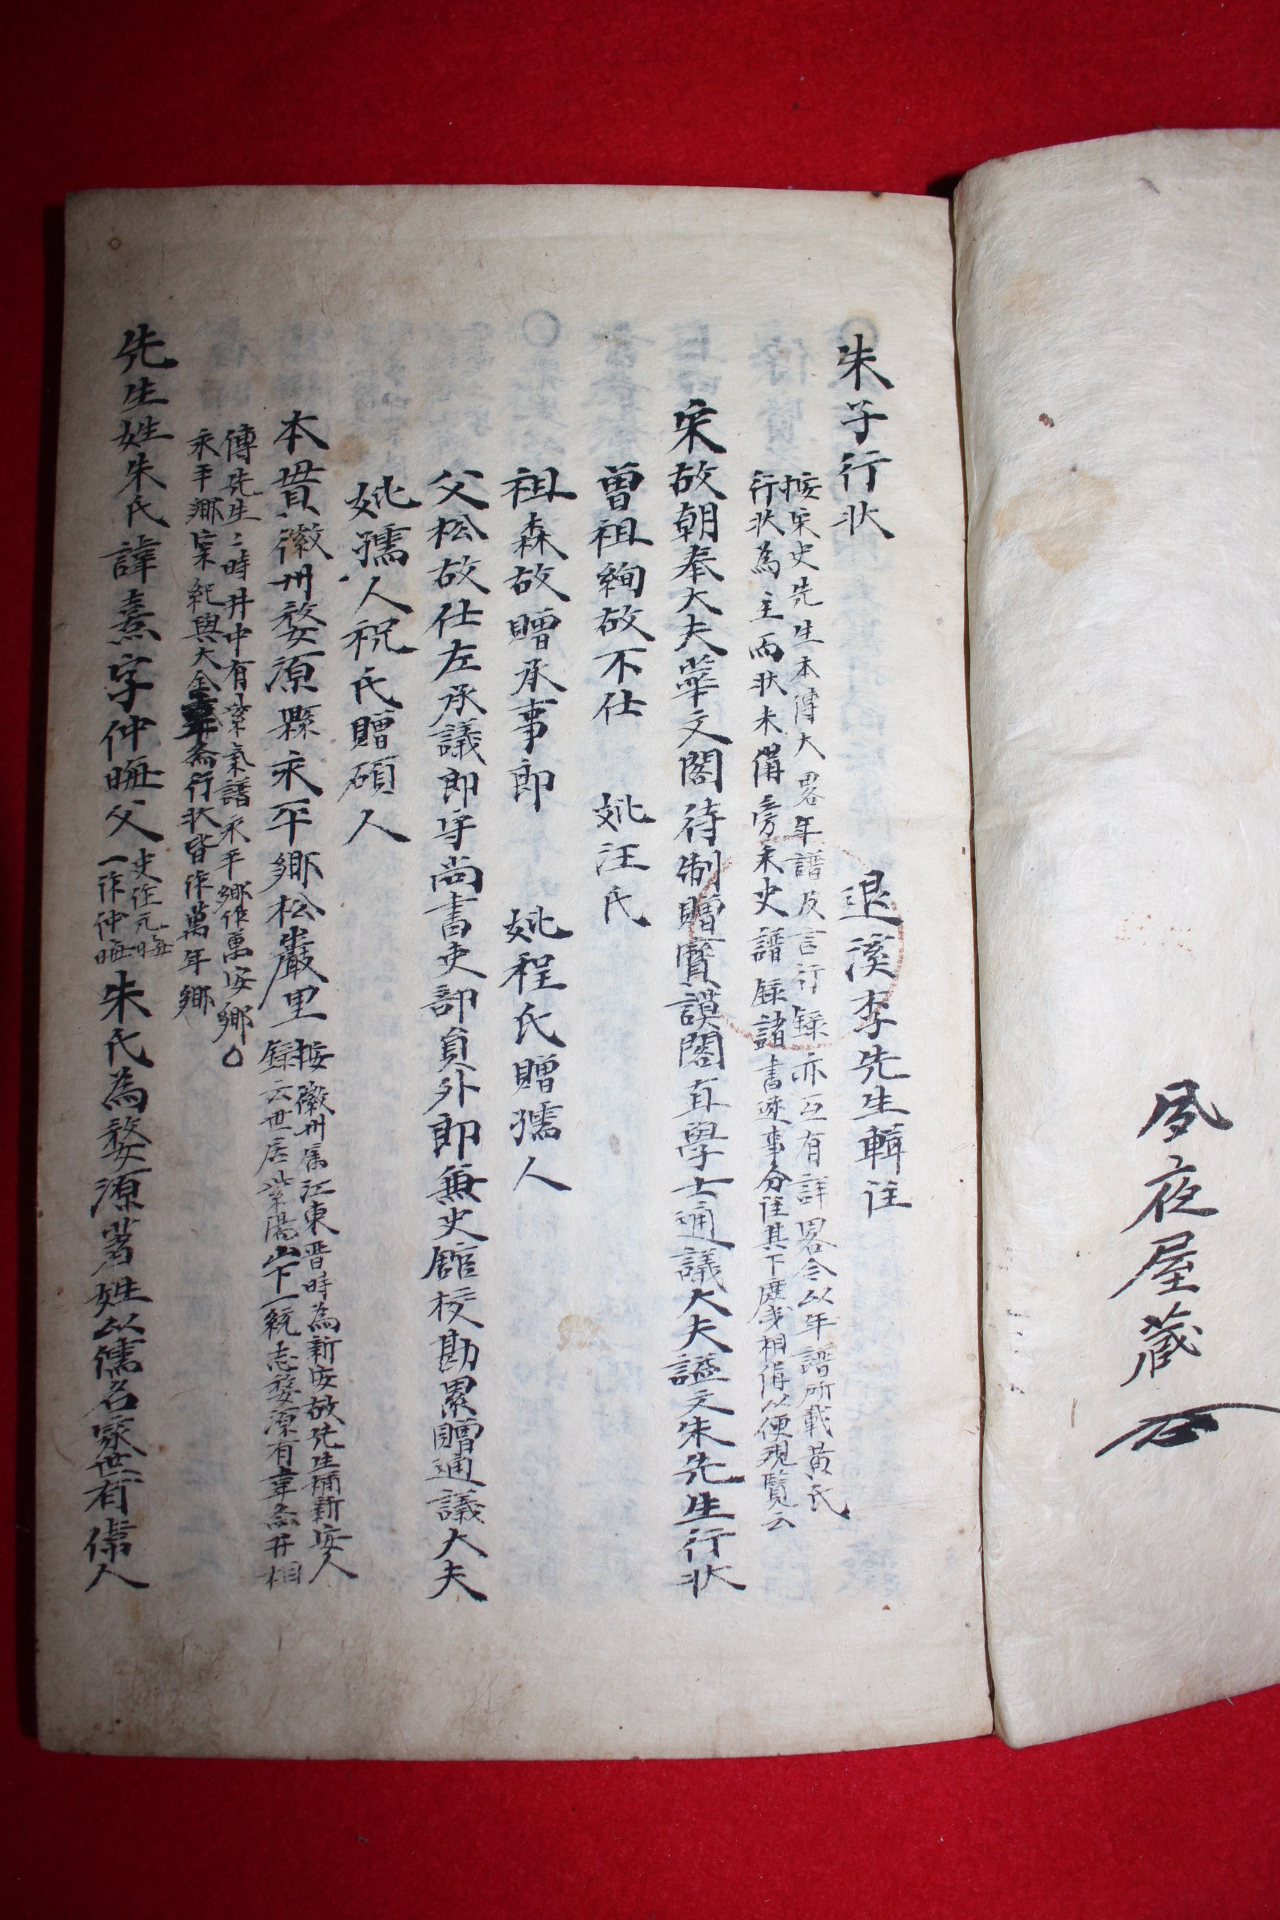 夙夜屋藏
朱子行狀
退溪李先生輯註
按宋史先生本傳大畧年譜及言行錄亦互有詳畧今以年譜所載黃氏
行狀為主而狀未備旁采史譜錄諸書逐事分註其下庶幾相備以便觀覽云
宋故朝奉大夫華文閣待制贈寶謨閣直學士通議大夫謚文朱先生行狀
曾祖絢故不仕 妣汪氏
祖森故贈承事郎 妣程氏贈孺人
父松故仕左承議郎守尚書吏部員外郎兼史館校勘累贈通議大夫
妣孺人祝氏贈碩人
本貫徽州婺源縣永平鄉松巖里
按徽州属江東晋時為新安故先生稱新安人
錄云世居紫陽山下一統志婺源有韋齋井相
傳先生之時井中有紫氣譜永平鄉作萬安鄉
永平鄉宋紀與大全韋齋行狀皆作萬年鄉
先生姓朱氏諱熹字仲晦父
史作元晦
一作仲晦
朱氏為婺源著姓以儒名家世有偉人